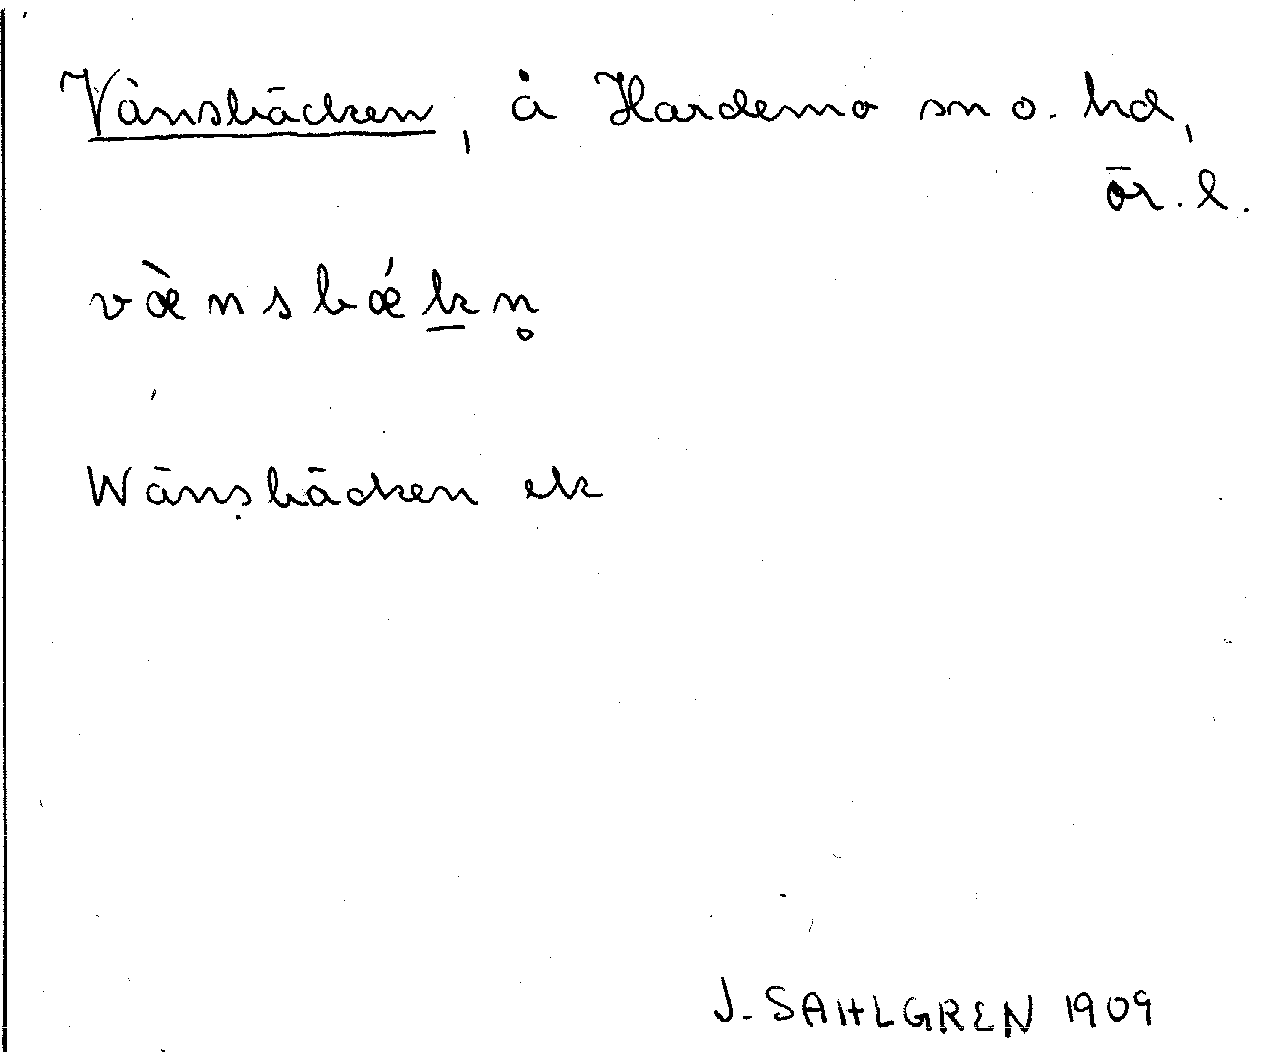 Vänsbäcken, å Hardemo sn o. hd,
ör. l.
væ̀nsbǽk̲n̥
Wänsbäcken ek
J. SAHLGREN 1909